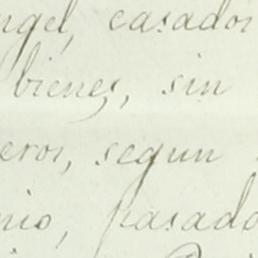 ngel, casados
bienes, sin
eros, segun
nio, pasado